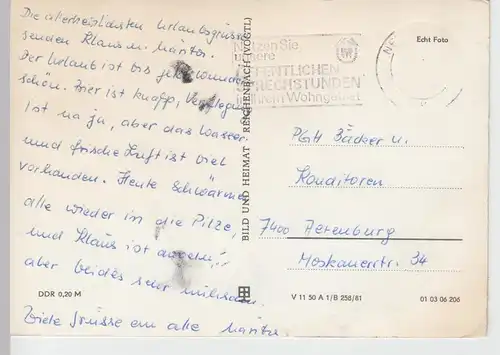 Die allerherzlichsten Urlaubsgrüsse
senden Klaus u. Marita.
Der Urlaub ist bis jetzt wunder-
schön. Bier ist knapp, Verpflegung
ist na ja, aber das Wasser
und frische Luft ist viel
vorhanden. Heute Schwärmen
alle wieder in die Pilze,
und Klaus ist angeln,
aber beides sehr mühsam.
Viele Grüsse an alle Marita
DDR 0,20 M
BILD UND HEIMAT REICHENBACH (VOGTL)
Nutzen Sie
unsere
ÖFFENTLICHEN
SPRECHSTUNDEN
in Ihrem Wohngebiet
Echt Foto
PGH Bäcker u.
Konditoren
7400 Altenburg
Moskauerstr. 34
V 11 50 A 1/B 258/81
01 03 06 206